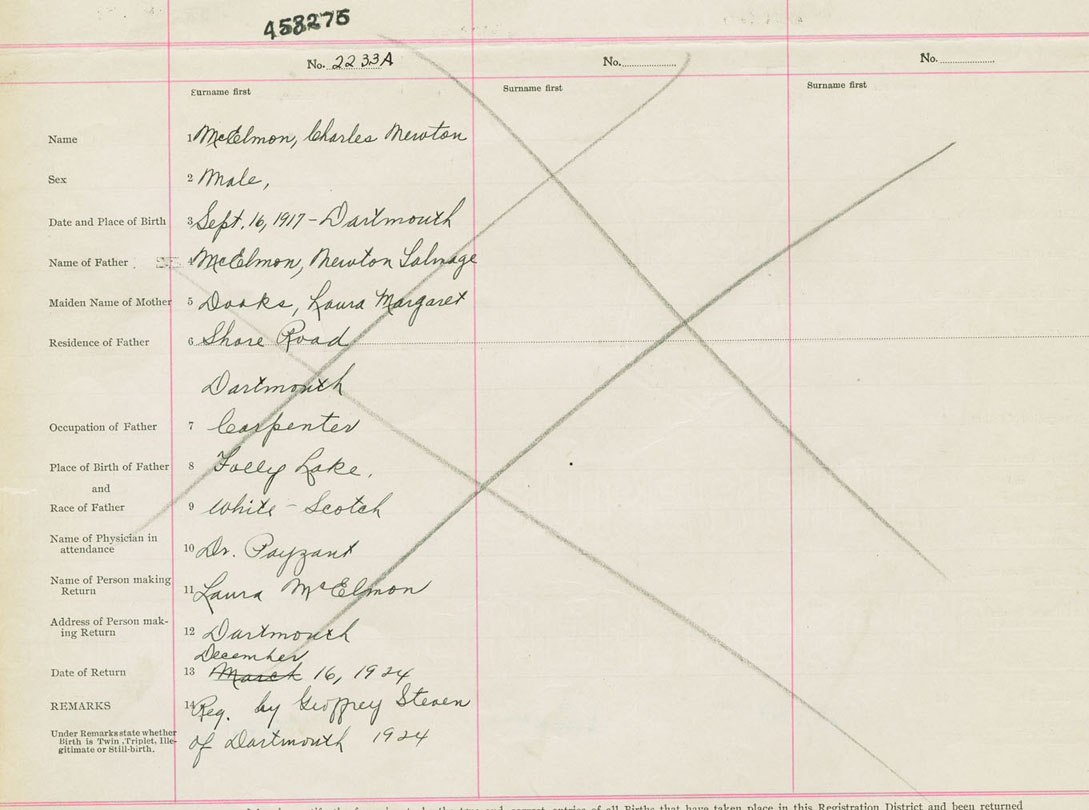 458275
No. 2233A No. No.
Surname first Surname first Surname first
Name 1 McElmon, Charles Newton
Sex 2 Male,
Date and Place of Birth 3 Sept. 16, 1917 - Dartmouth
Name of Father 4 McElmon, Newton Salmage
Maiden Name of Mother 5 Dooks, Laura Margaret
Residence of Father 6 Shore Road
Dartmouth
Occupation of Father 7 Carpenter
Place of Birth of Father 8 Folly Lake.
and
Race of Father 9 White - Scotch
Name of Physician in
attendance 10 Dr. Payzant
Name of Person making
Return 11 Laura McElmon
Address of Person mak-
ing Return 12 Dartmouth
December
Date of Return 13 March 16, 1924
REMARKS 14 Reg. by Geoffrey Steven
Under Remarks state whether
Birth is Twin, Triplet, Ille-
gitimate or Still-birth. of Dartmouth 1924
true and correct entries of all Births that have taken place in this Registration District and been returned